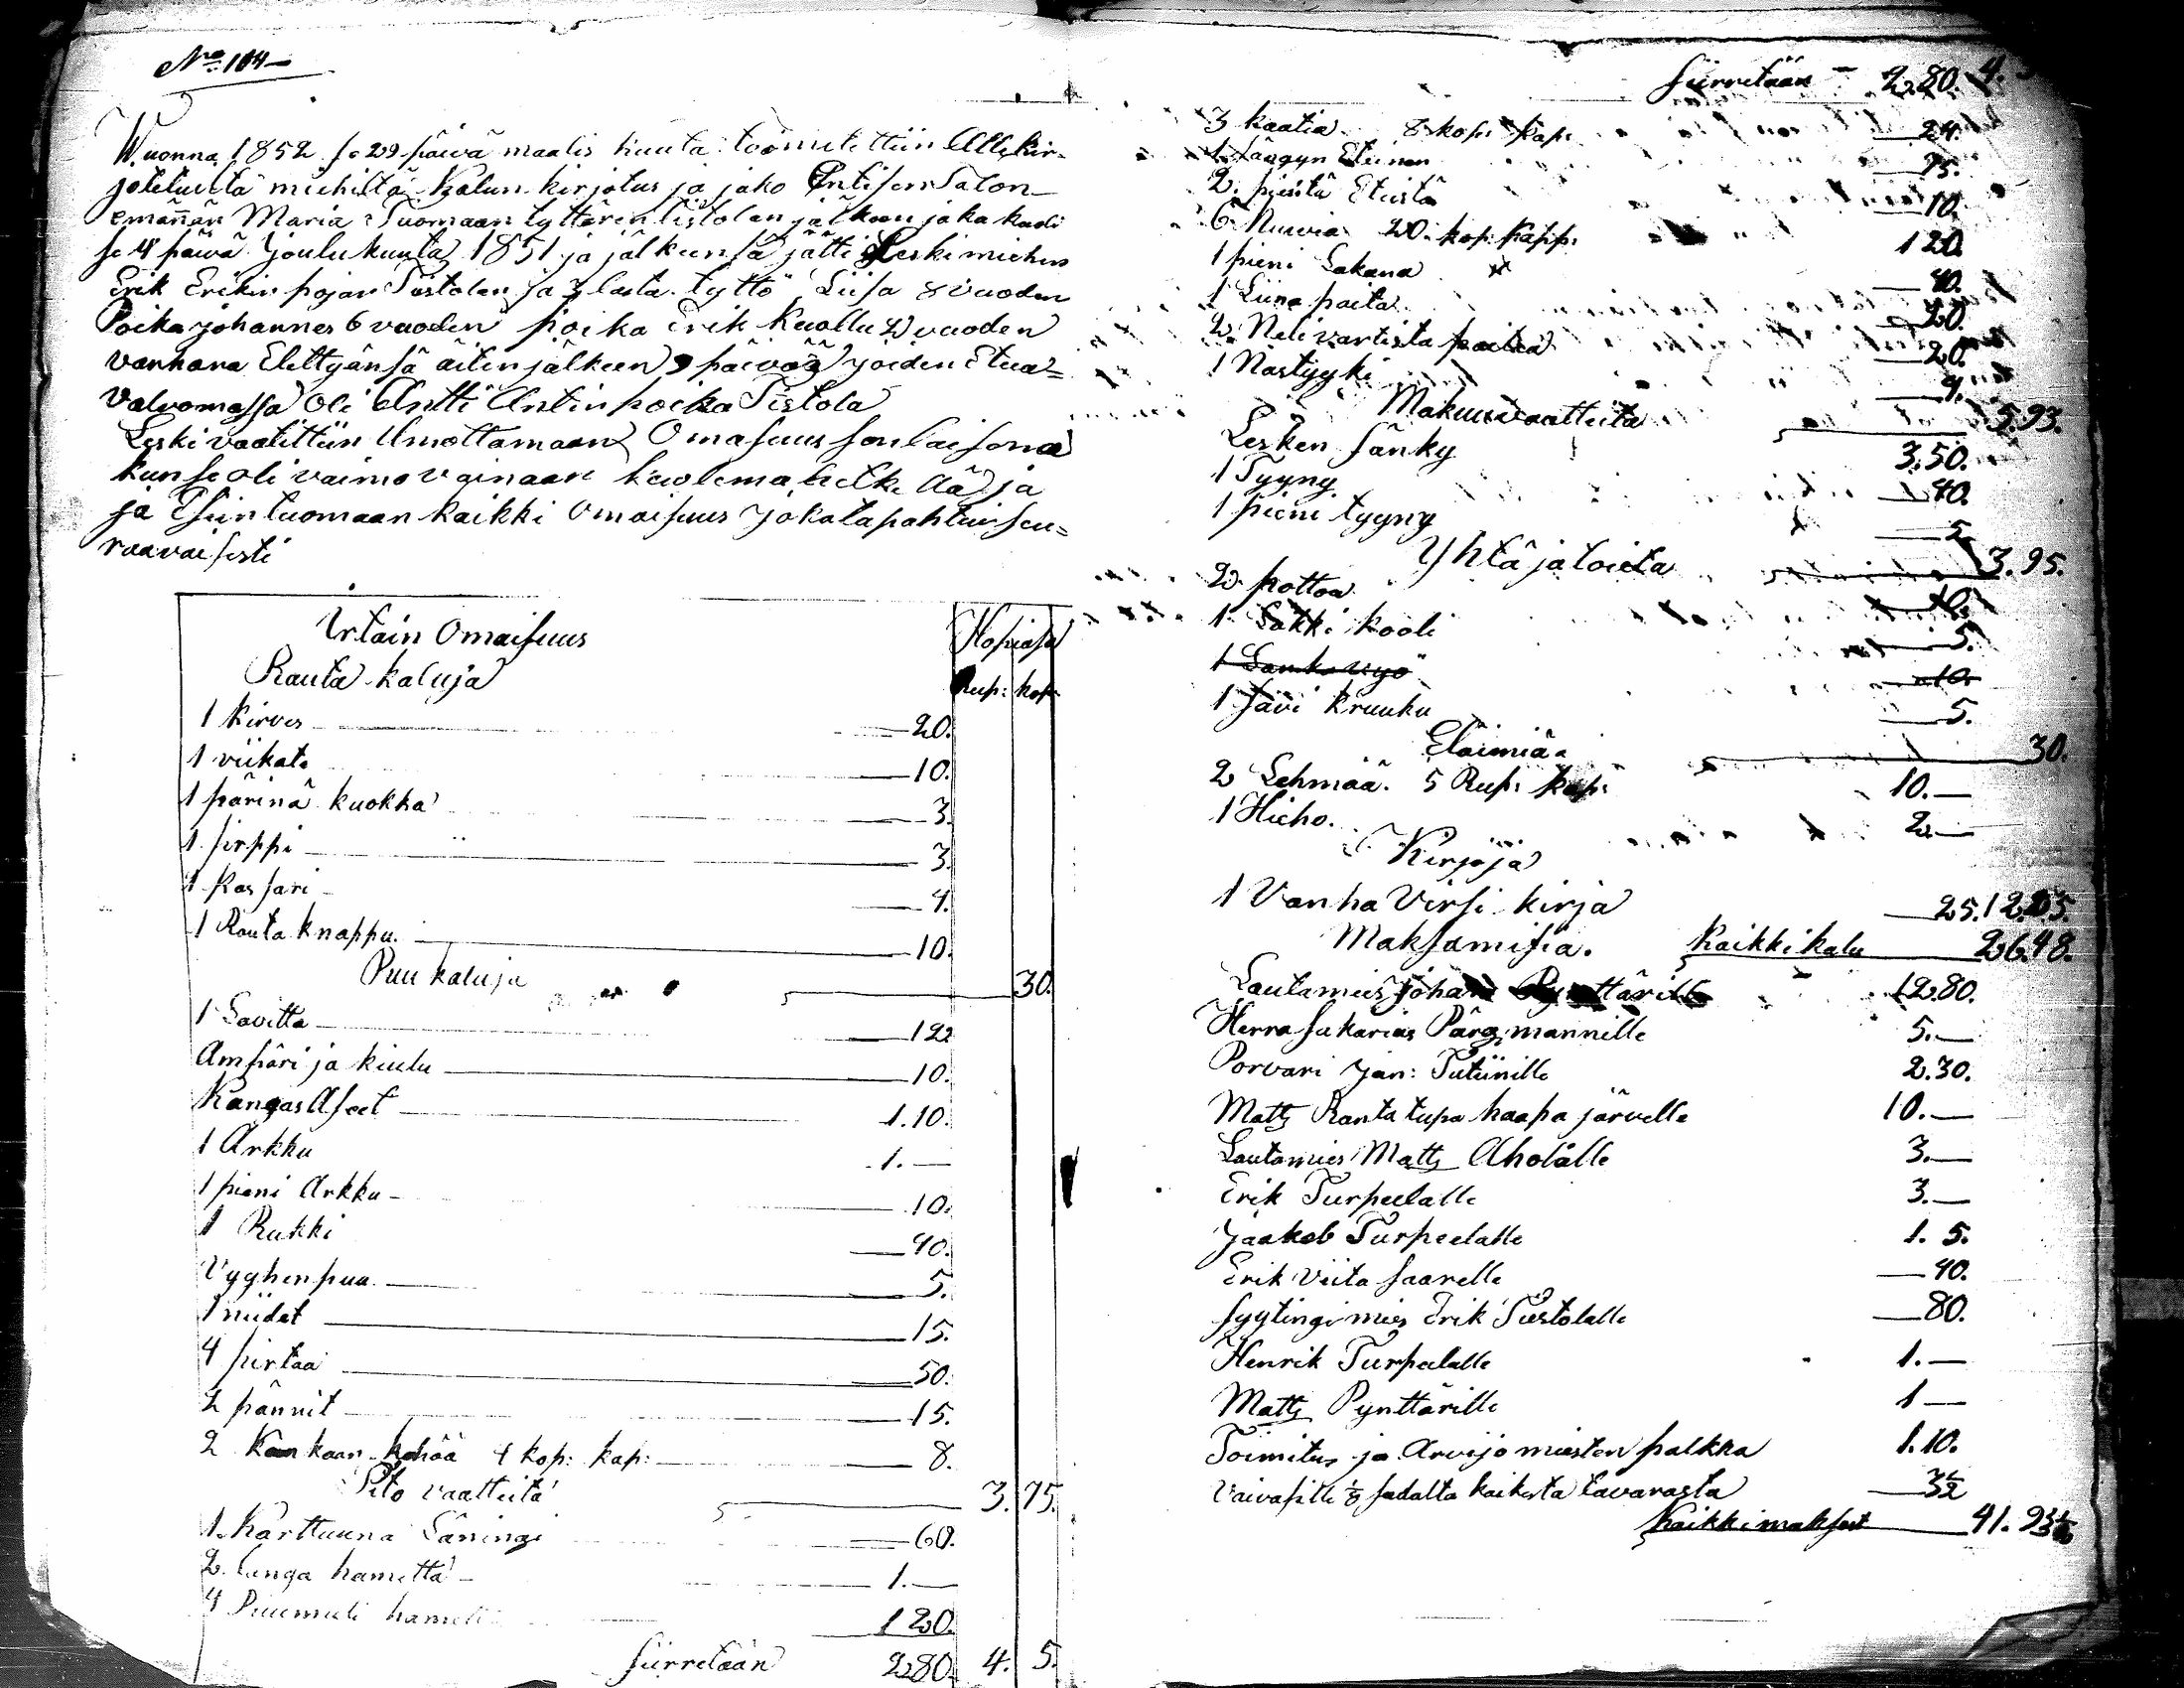 No 104
Wuonna 1852 se 29 päivä maalis kuuta toomitettiin Allekir-
jotetuilta miehiltä Kalun kirjotus ja jako Entisen Talon-
emännän Maria Tuomaan tyttären Tistolan jälkeen joka kuoli
se 4 päivä Joulukuuta 1851 ja jälkeensä jätti Leskimiehen
Erik Erikin pojan Tistolan ja 3 lasta tyttö Liisa 8 vuoden
Poika johannes 6 vuoden poika Erik Kuollu 2 vuoden
vanhana Elettyänsä äitin jälkeen 9 päivää joiden Etua=
valvomassa Oli Antti Antinpoika Tistola
Leski vaatittiin Ilmottamaan Omasuus sonlaisona
kun se oli vaimo vainaan kuolema hetkellä ja
ja Esiin tuomaan kaikki Omaisuus joka tapahtui seu=
raavaisesti
Irtain Omaisuus Hopiasa
Rauta kaluja Rup: kop:
1 Kirves 20.
1 viikate 10.
1 pärinä kuokka 3.
1 sirppi 3.
1 Kassari 4.
1 Rauta knappu. 10.
Puu kaluja 30.
1 Lavitta 12
Ampäri ja kiulu 10.
Kangas Aseet 1.10.
1 Arkku 1.—
1 pieni Arkku 10.
1 Rukki 40.
Vyyhenpuu 5.
1 niidet 15.
4 pirtaa 50.
2 pännit 15.
2 Kan kaan 4 kop: kap: 8.
Pito vaatteita 3.75.
1 Karttuuna Läningi 60.
2 langa hametta 1.—
4 hameti 120.
siirretään 2.80. 4. 5.
Siirretään 2.80. 4.
3 kaatia 8 kop: kap: 24.
1 sängyn Eteinen 75.
2 pientä Eteistä 10.
6 20 kop: kapp: 120.
1 pieni Lakana 40.
1 Liina paita 20.
2 Neli vartista paitaa 20.
1 Nästyyki 4.
Makuuvaatteita 5.93.
Lesken sänky 3.50.
1 Tyyny 40.
1 pieni tyyny 5
Yhtä ja toista 3.95.
2 pottoa 10.
1 Lakki kooli 5.
1 10.
1 savi kruuku 5.
Eläimiä 30.
2 Lehmää. 5 Rup: kap: 10.—
1 Hieho. 2.—
Kirjoja
1 Vanha Virsi kirja 25. 12.25.
Maksamisia. Kaikki kalu 26.48.
Lautamies Johan Pynttärille 12.80.
Herra Sakarias Pärgmannille 5.—
Porvari Jan: Tutiinille 2.30.
Matts Ranta tupa haapa järvelle 10.—
Lautamies Matts Aholalle 3.—
Erik Turpeelalle 3.—
Jaakob Turpeelalle 1. 5.
Erik Viita saarelle 40.
syytingi mies Erik Tistolalle 80.
Henrik Turpeelalle 1.—
Matts Pynttärille 1—
Toimitus ja Arvijo miesten palkka 1.10.
Vaivasille 1/8 sadalta kaikesta tavarasta 3½
Kaikki maksut 41.